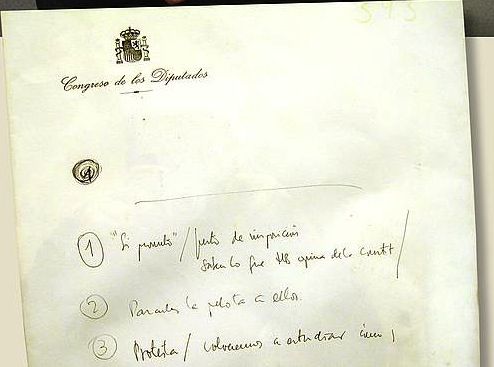 343
Congreso de los Diputados
1
1 "Si pronto" / punto de inspiración
Saben lo que opina de la Constit /
2 Pasarles la pelota a ellos.
3 Protesta / volveremos a estudiar